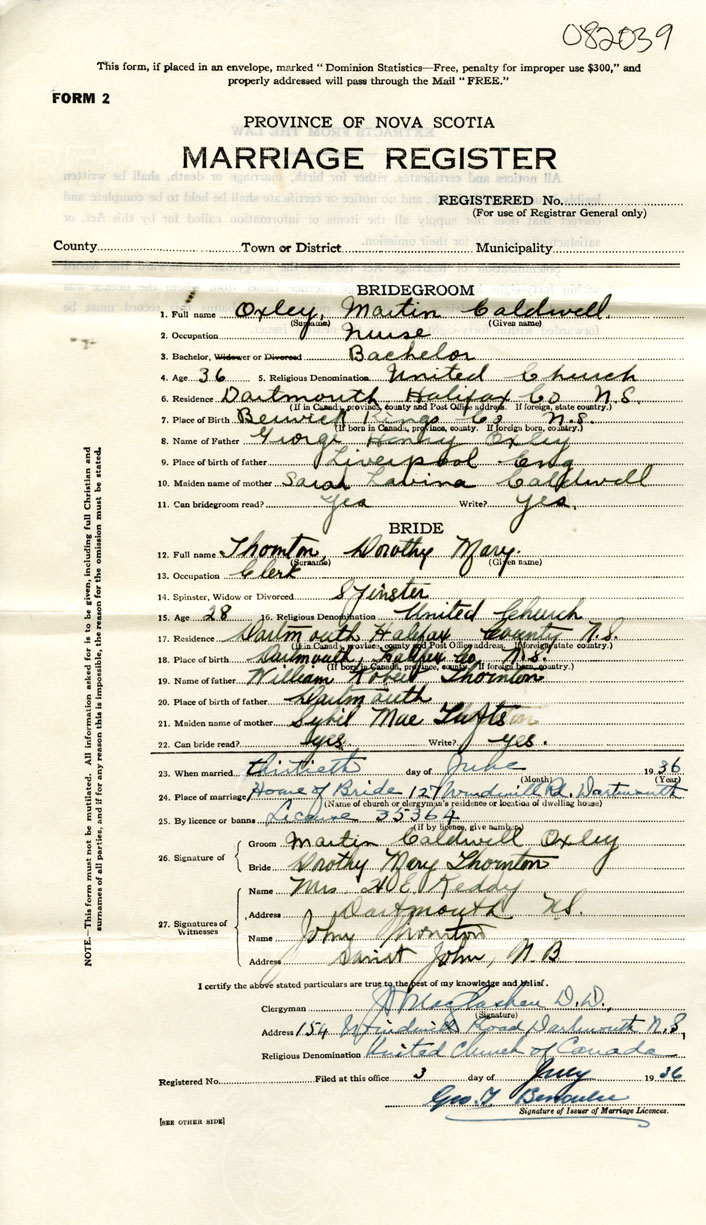 082039
This form, if placed in an envelope, marked "Dominion Statistics—Free, penalty for improper use $300," and
properly addressed will pass through the Mail "FREE."
FORM 2
PROVINCE OF NOVA SCOTIA
MARRIAGE REGISTER
REGISTERED No.
(For use of Registrar General only)
County Town or District Municipality
BRIDEGROOM
1. Full name Oxley, Martin Caldwell
(Surname) (Given name)
2. Occupation Nurse
3. Bachelor, Widower or Divorced Bachelor
4. Age 36 5. Religious Denomination United Church
6. Residence Dartmouth Halifax Co N.S.
(If in Canada, province, county and Post Office address. If foreign, state country.)
7. Place of Birth Berwick Kings Co N.S.
(If born in Canada, province, county. If foreign born, country.)
8. Name of Father George Henry Oxley
9. Place of birth of father Liverpool Eng
10. Maiden name of mother Sarah Lavina Caldwell
11. Can bridegroom read? Yes Write? Yes.
BRIDE
12. Full name Thornton, Dorothy Mary.
(Surname) (Given name)
13. Occupation Clerk
14. Spinster, Widow or Divorced Spinster
15. Age 28 16. Religious Denomination United Church
17. Residence Dartmouth Halifax County N.S.
(If in Canada, province, county and Post Office address. If foreign, state country.)
18. Place of birth Dartmouth, Halifax Co. N.S.
(If born in Canada, province, county. If foreign born, country.)
19. Name of father William Robert Thornton
20. Place of birth of father Dartmouth
21. Maiden name of mother Sybil Mae
22. Can bride read? yes Write? yes.
23. When married thirtieth day of June 1936
(Month) (Year)
24. Place of marriage Home of Bride 127 Windmill Rd. Dartmouth
(Name of church or clergyman's residence or location of dwelling house)
25. By licence or banns License 35364
(If by licence, give number)
26. Signature of
Groom Martin Caldwell Oxley
Bride Dorothy Mary Thornton
27. Signatures of Witnesses
Name Mrs. H E Keddy
Address Dartmouth NS.
Name John Thornton
Address Saint John, N.B
I certify the above stated particulars are true to the best of my knowledge and belief.
Clergyman D.D.,
(Signature)
Address 154 Windmill Road Dartmouth N.S.,
Religious Denomination United Church of Canada
Registered No. Filed at this office 3 day of July 1936
Geo. T.
Signature of Issuer of Marriage Licences.
[SEE OTHER SIDE]
NOTE.—This form must not be mutilated. All information asked for is to be given, including full Christian and
surnames of all parties, and if for any reason this is impossible, the reason for the omission must be stated.